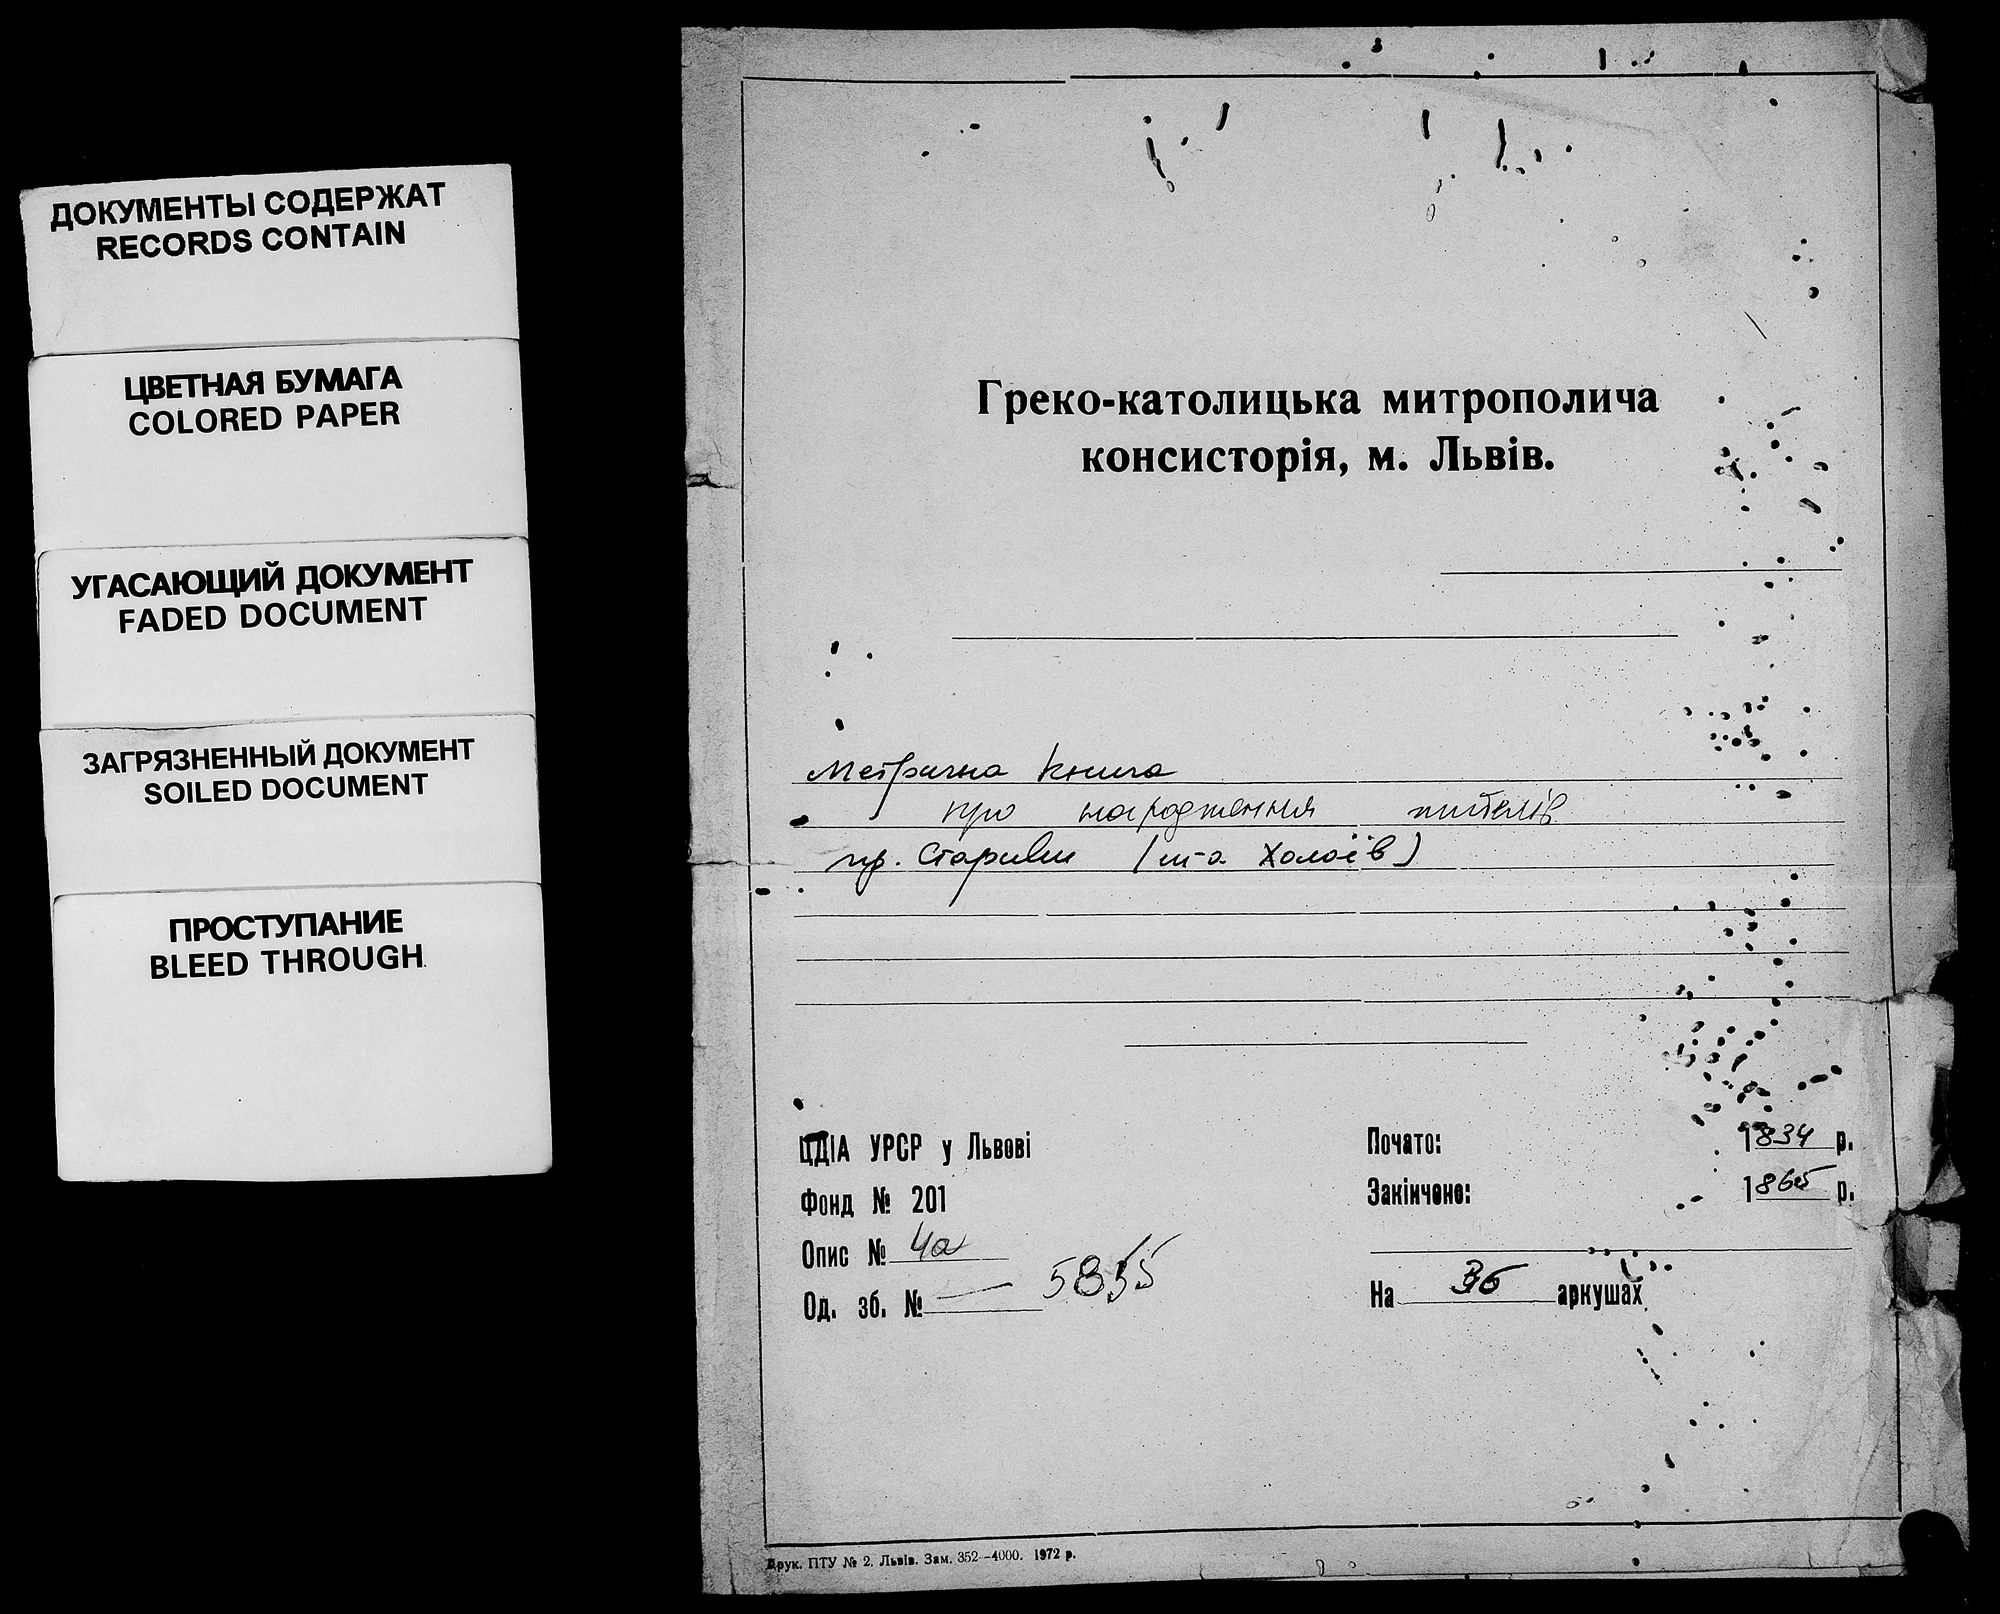 ДОКУМЕНТЫ СОДЕРЖАТ
RECORDS CONTAIN
ЦВЕТНАЯ БУМАГА
COLORED PAPER
УГАСАЮЩИЙ ДОКУМЕНТ
FADED DOCUMENT
ЗАГРЯЗНЕННЫЙ ДОКУМЕНТ
SOILED DOCUMENT
ПРОСТУПАНИЕ
BLEED THROUGH
Греко-католицька митрополича
консисторія, м. Львів.
Метрична книга
про народження жителів
пр. (м-а Холоїв)
ЦДІА УРСР у Львові
Фонд № 201
Опис № 4а
Од. зб. №
Почато: 1834 р.
Закінчено: 1865 р.
На 36 аркушах
Друк. ПТУ № 2. Львів. Зам. 352—4000. 1972 р.